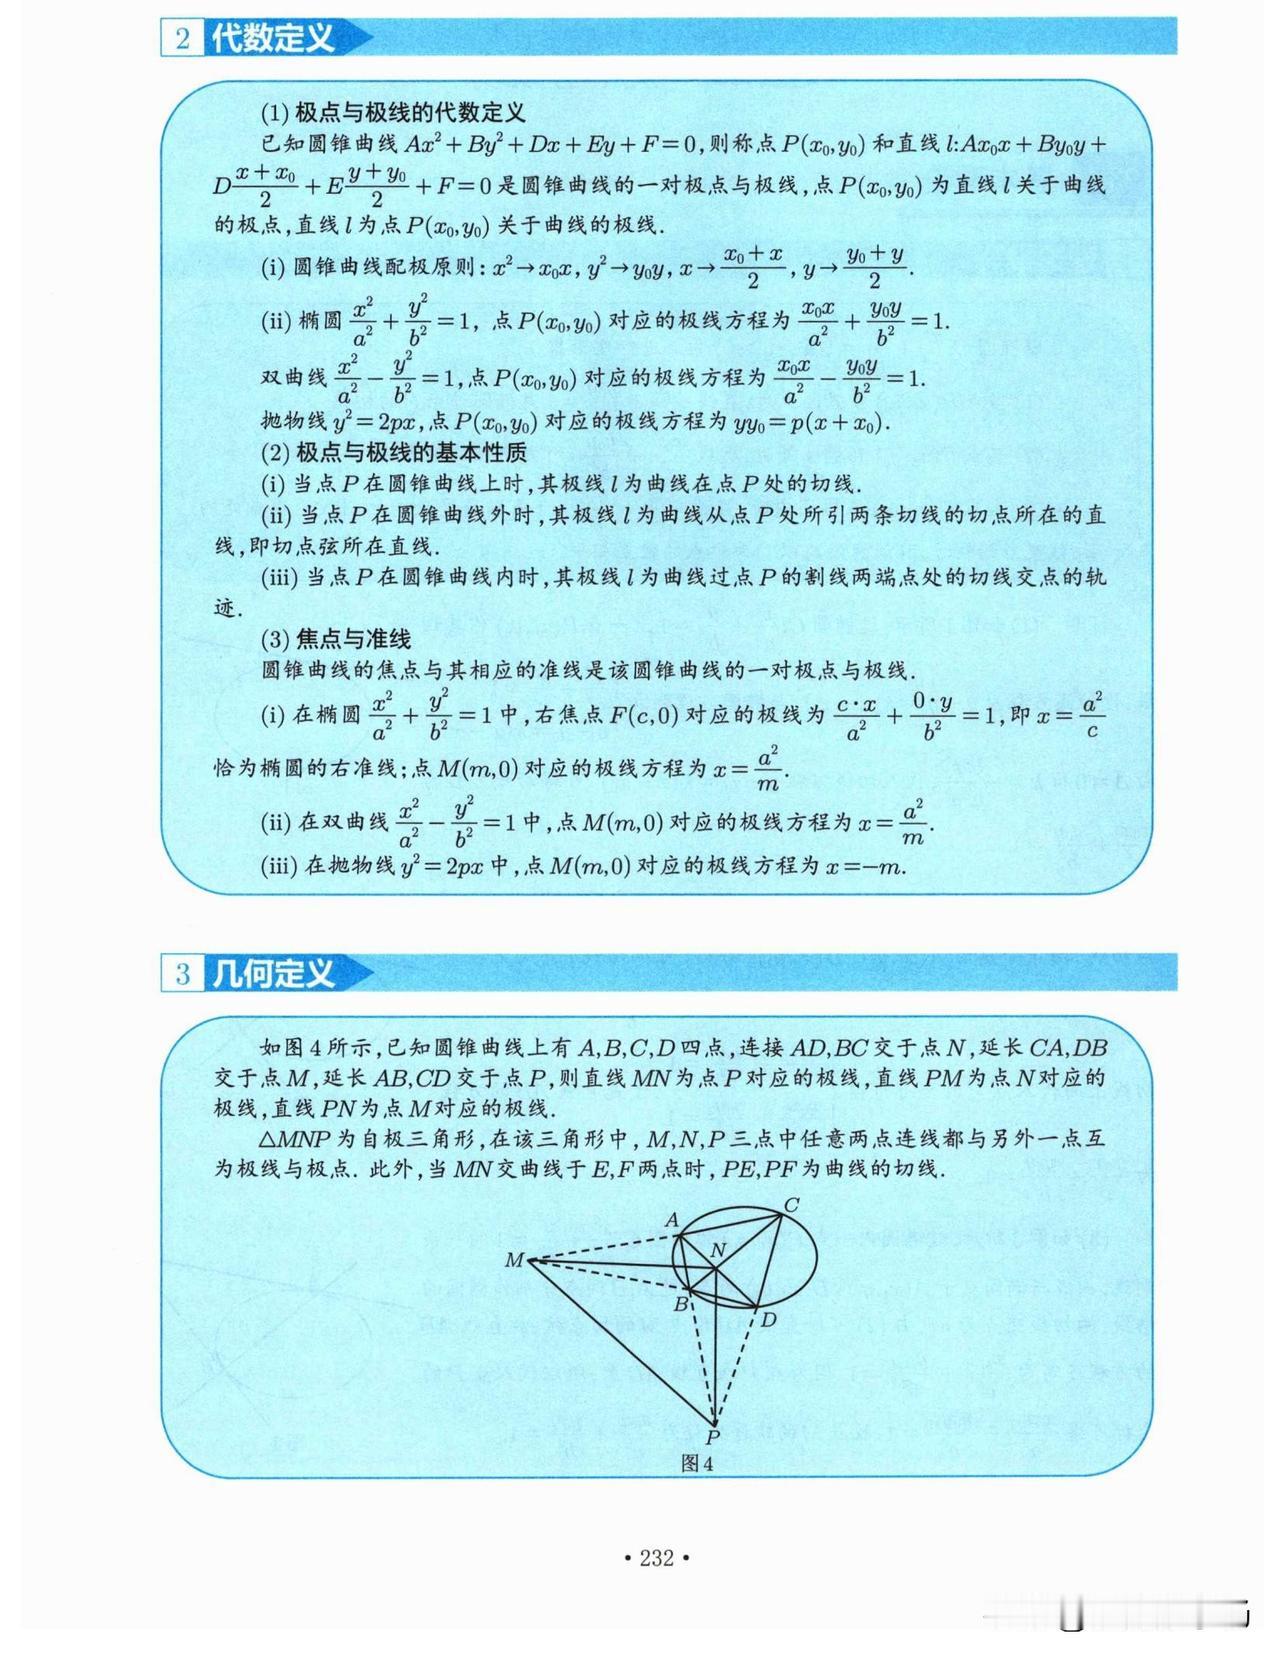 2 代数定义
(1) 极点与极线的代数定义
已知圆锥曲线 Ax²+By²+Dx+Ey+F=0,则称点 P(x₀,y₀) 和直线 l:Ax₀x+By₀y+
D(x+x₀)/2+E(y+y₀)/2+F=0 是圆锥曲线的一对极点与极线,点 P(x₀,y₀) 为直线 l 关于曲线
的极点,直线 l 为点 P(x₀,y₀) 关于曲线的极线.
(i) 圆锥曲线配极原则:x²→x₀x, y²→y₀y, x→(x₀+x)/2, y→(y₀+y)/2.
(ii) 椭圆 x²/a²+y²/b²=1, 点 P(x₀,y₀) 对应的极线方程为 x₀x/a²+y₀y/b²=1.
双曲线 x²/a²-y²/b²=1,点 P(x₀,y₀) 对应的极线方程为 x₀x/a²-y₀y/b²=1.
抛物线 y²=2px,点 P(x₀,y₀) 对应的极线方程为 yy₀=p(x+x₀).
(2) 极点与极线的基本性质
(i) 当点 P 在圆锥曲线上时,其极线 l 为曲线在点 P 处的切线.
(ii) 当点 P 在圆锥曲线外时,其极线 l 为曲线从点 P 处所引两条切线的切点所在的直
线,即切点弦所在直线.
(iii) 当点 P 在圆锥曲线内时,其极线 l 为曲线过点 P 的割线两端点处的切线交点的轨
迹.
(3) 焦点与准线
圆锥曲线的焦点与其相应的准线是该圆锥曲线的一对极点与极线.
(i) 在椭圆 x²/a²+y²/b²=1 中,右焦点 F(c,0) 对应的极线为 c·x/a²+0·y/b²=1,即 x=a²/c
恰为椭圆的右准线;点 M(m,0) 对应的极线方程为 x=a²/m.
(ii) 在双曲线 x²/a²-y²/b²=1 中,点 M(m,0) 对应的极线方程为 x=a²/m.
(iii) 在抛物线 y²=2px 中,点 M(m,0) 对应的极线方程为 x=-m.
3 几何定义
如图 4 所示,已知圆锥曲线上有 A,B,C,D 四点,连接 AD,BC 交于点 N,延长 CA,DB
交于点 M,延长 AB,CD 交于点 P,则直线 MN 为点 P 对应的极线,直线 PM 为点 N 对应的
极线,直线 PN 为点 M 对应的极线.
△MNP 为自极三角形,在该三角形中, M,N,P 三点中任意两点连线都与另外一点互
为极线与极点. 此外,当 MN 交曲线于 E,F 两点时, PE,PF 为曲线的切线.
C
A
N
M
B
D
P
图4
· 232 ·